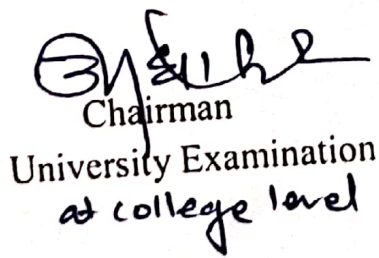 Chairman
University Examination
at college level